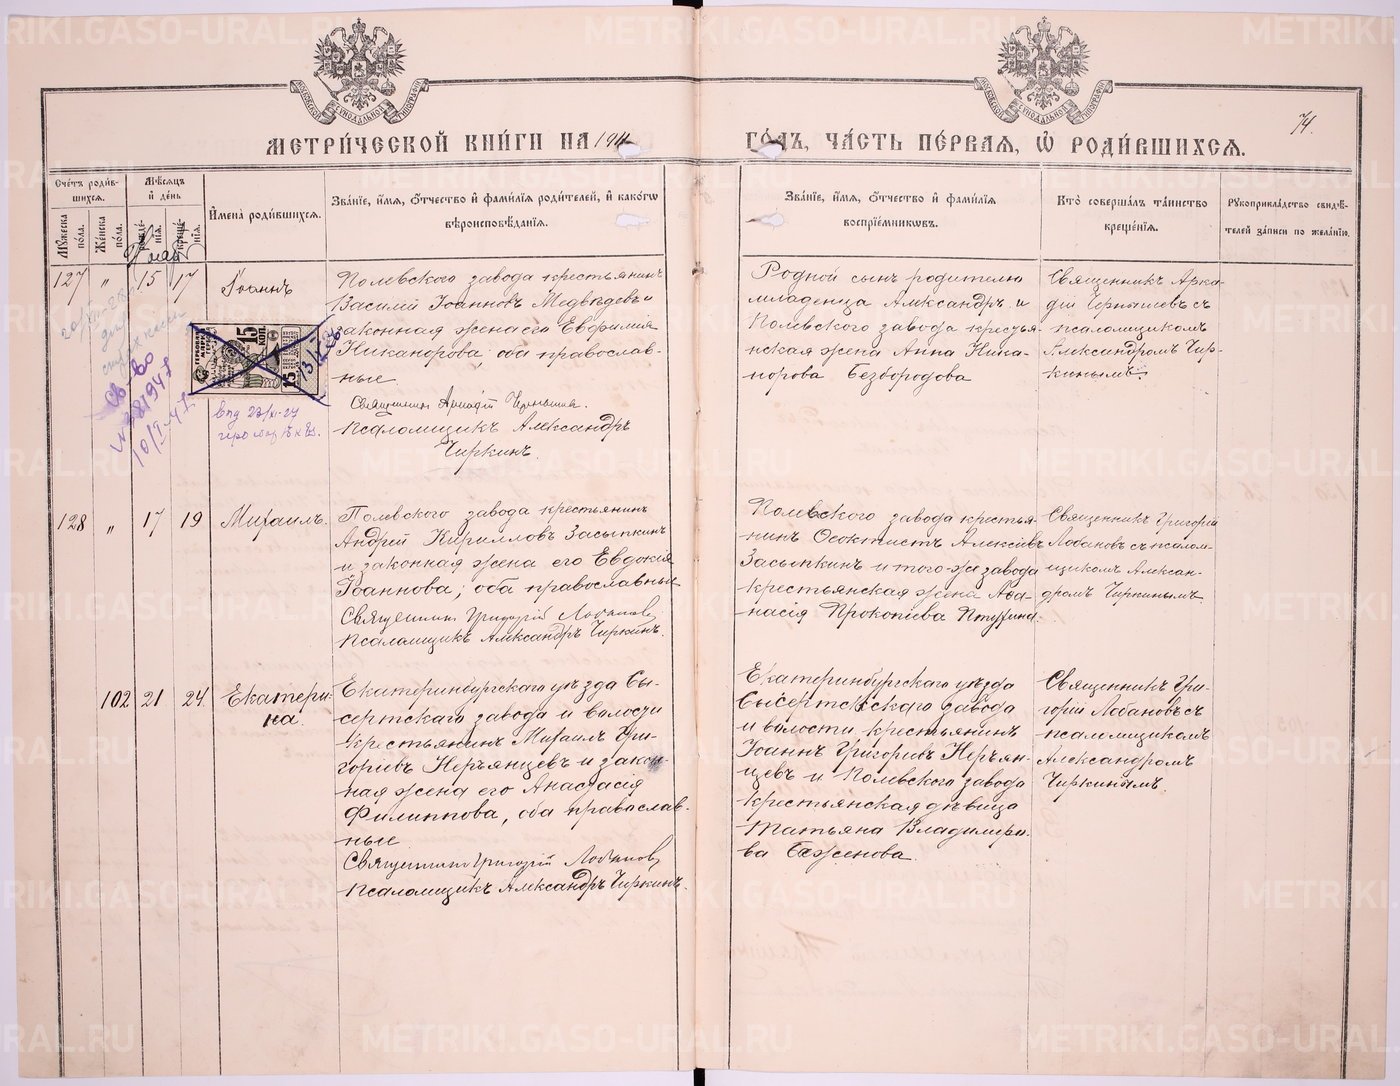 МЕТРИ́ЧЕСКОЙ КНИ́ГИ НА 1911
ГО́ДЪ, ЧА́СТЬ ПЕ́РВАЯ, Ѡ҆ РОДИ́ВШИХСЯ.
74.
Сче́тъ роди́в-
шихся.
Мꙋ́жеска по́ла.
Же́нска по́ла.
Мѣ́сяцъ и҆ де́нь
рожде́-
нїя.
креще́-
нїя.
И҆мена̀ роди́вшихся.
Зва́нїе, и҆́мя, ѻ҆́тчество и҆ фами́лїя роди́телей, и҆ како́гѡ
вѣроисповѣ́данїя.
Зва́нїе, и҆́мя, ѻ҆́тчество и҆ фами́лїя
воспрїе́мникѡвъ.
Кто̀ соверша́лъ та́инство
креще́нїя.
Рꙋкоприкла́дство свидѣ́-
телей за́писи по жела́нїю.
127 " 15 17 Іоаннъ
Полевского завода крестьянинъ
Василій Іоанновъ Медвѣдевъ и
законная жена его Евфимія
Никанорова, оба православ-
ные
Священникъ Аркадій Чернышевъ.
Псаломщикъ Александръ
Чиркинъ.
Родной сынъ родителю
младенца Александръ, и
Полевского завода крестья-
нская жена Анна Ника-
норова Безбородова
Священникъ Арка-
дій Чернышевъ съ
псаломщикомъ
Александромъ Чир-
кинымъ.
15 КОП.
15
Св-во
10/I-47.
128 " 17 19 Михаилъ.
Полевского завода крестьянинъ
Андрей Кирилловъ Засыпкинъ
и законная жена его Евдокія
Іоаннова, оба православные
Священникъ Григорій Лобановъ
Псаломщикъ Александръ Чиркинъ.
Полевского завода крестья-
нинъ Ѳеоктистъ Алексѣевъ
Засыпкинъ и того-же завода
крестьянская жена Аѳа-
насія Прокопіева Птухина.
Священникъ Григорій
Лобановъ съ псалом-
щикомъ Алексан-
дромъ Чиркинымъ.
102 21 24 Екатери-
на.
Екатеринбургскаго уѣзда Сы-
сертскаго завода и волости
крестьянинъ Михаилъ Гри-
горіевъ Неръянцевъ и закон-
ная жена его Анастасія
Филиппова, оба православ-
ные
Священникъ Григорій Лобановъ
Псаломщикъ Александръ Чиркинъ.
Екатеринбургскаго уѣзда
Сысертскаго завода
и волости крестьянинъ
Іоаннъ Григоріевъ Неръян-
цевъ и Полевского завода
крестьянская дѣвица
Татьяна Владиміро-
ва Баженова.
Священникъ Гри-
горій Лобановъ съ
псаломщикомъ
Александромъ
Чиркинымъ.
METRIKI.GASO-URAL.RU